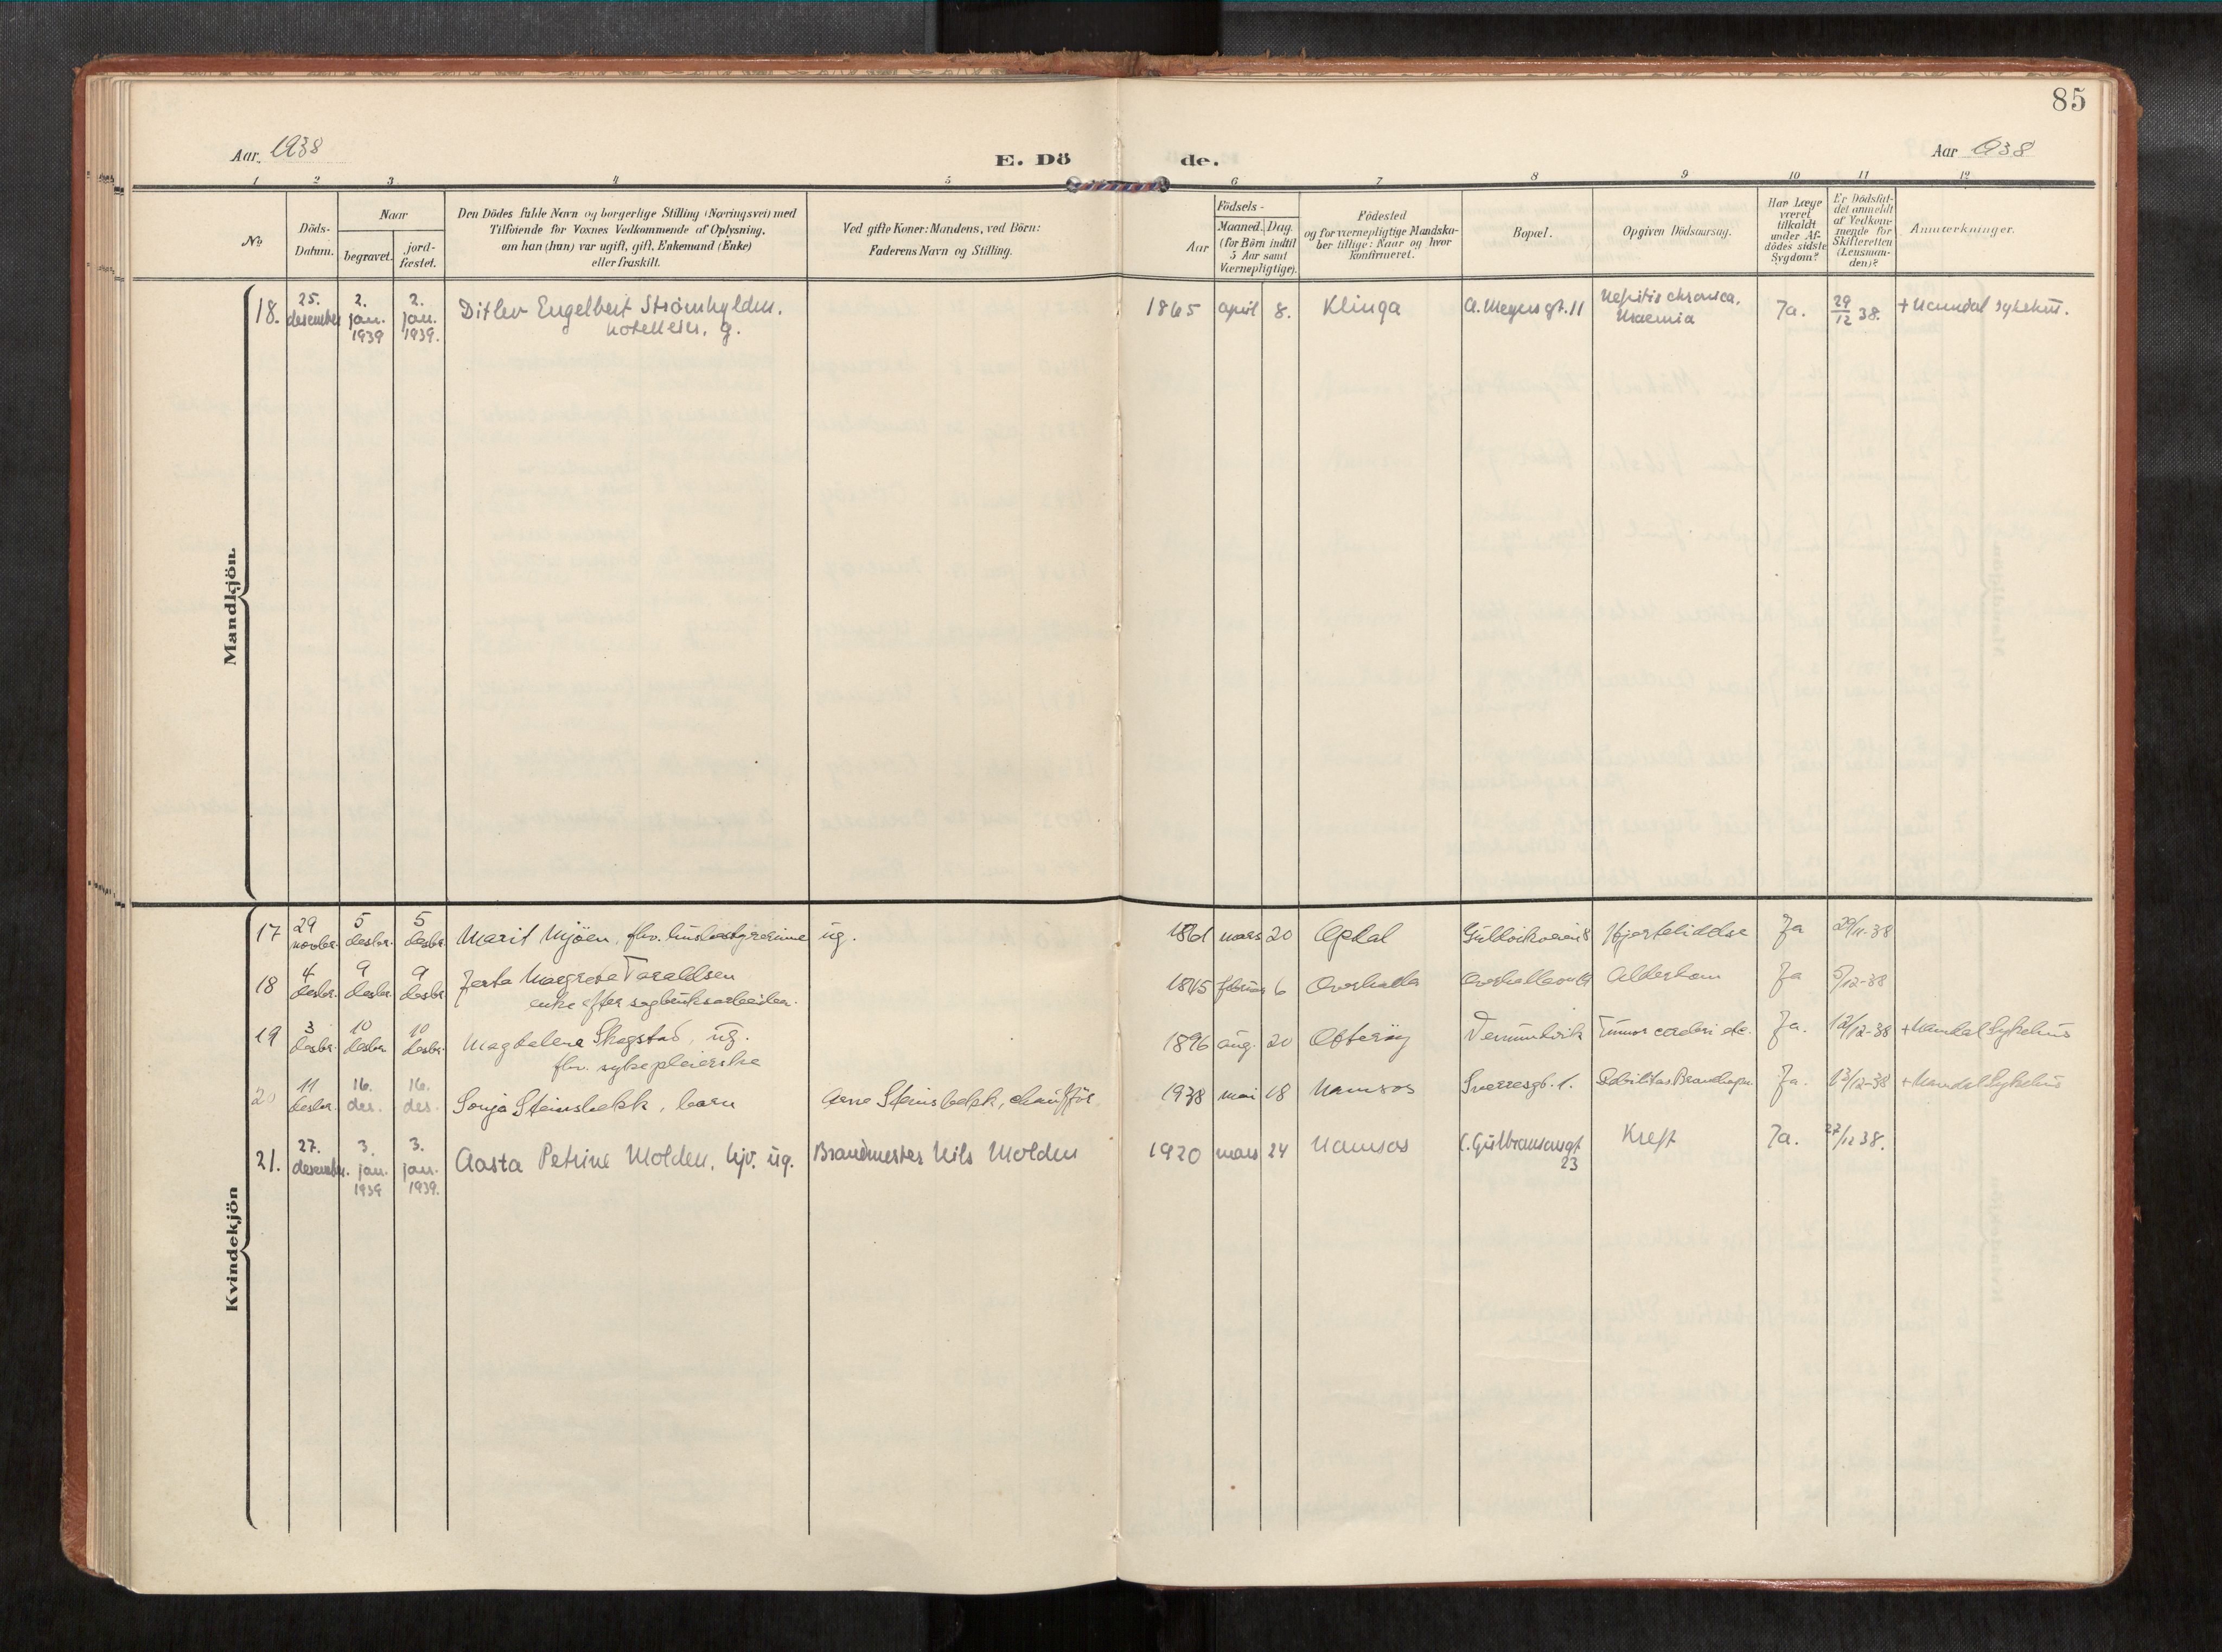 85
Aar 1938
E. Dö
de.
Aar 1938
1 2 3 4 5 6 7 8 9 10 11 12
No
Döds-
Datum.
Naar
begravet.
jord-
fæstet.
Den Dödes fulde Navn og borgerlige Stilling (Næringsvei) med
Tilföiende for Voxnes Vedkommende af Oplysning,
om han (hun) var ugift, gift, Enkemand (Enke)
eller fraskilt.
Ved gifte Koner: Mandens, ved Börn:
Faderens Navn og Stilling.
Födsels-
Aar
Maaned. Dag.
(for Börn indtil
5 Aar samt
Værnepligtige).
Födested
og for værnepligtige Mandska-
ber tillige: Naar og hvor
konfirmeret.
Bopæl.
Opgiven Dödsaarsag.
Har Læge
været
tilkaldt
under Af-
dödes sidste
Sygdom?
Er Dödsfal-
det anmeldt
af Vedkom-
mende for
Skifteretten
(Lensman-
den)?
Anmærkninger.
Mandkjön.
18. 25. desember 2. jan. 1939 2. jan. 1939. Ditlev Engelbert Strömhylden. 1865 april 8. Klinga A. Meyers gt. 11 Nefritis chronica. Ja. 29/12 38. + Namdal sykehus.
hotelleier, g. Uraemia
Kvindekjön
17 29 novbr. 5 desbr. 5 desbr. Marit Mjöen, fhv. husbestyrerinne ug. 1861 mars 20 Opdal Hjertelidelse Ja 29/11-38
18 4 desbr. 9 desbr. 9 desbr. Margrete Taraldsen 1845 februar 6 Overhalla Alderdom Ja 5/12-38
enke efter sagbruksarbeider.
19 3 desbr. 10 desbr. 10 desbr. Magdalena Skagstad, ug. 1896 aug. 20 Otteröy Vemundvik Tumor cerebri etc. Ja. 12/12-38 + Namdal Sykehus
fhv. sykepleierske
20 11 desbr. 16. des. 16. des. Sonja Steinsbekk, barn Arne Steinsbekk, chaufför 1938 mai 18 Namsos Sverresgt. 1. Debilitas Ja. 13/12-38 + Namdal Sykehus
21. 27. desember. 3. jan. 1939 3. jan. 1939. Aasta Petrine Molden, hjv. ug. Brandmester Nils Molden 1920 mars 24 Namsos C. Gulbransonsgt. 23 Kreft Ja. 27/12 38.